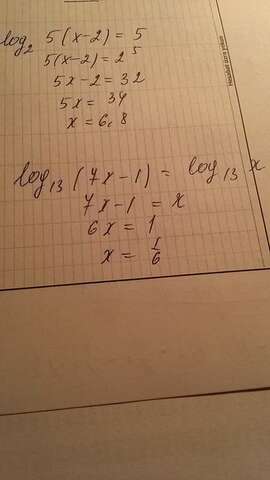 log₂ 5(x-2) = 5
5(x-2) = 2⁵
5x-2 = 32
5x = 34
x = 6,8
log₁₃ (7x-1) = log₁₃ x
7x-1 = x
6x = 1
x = 1/6